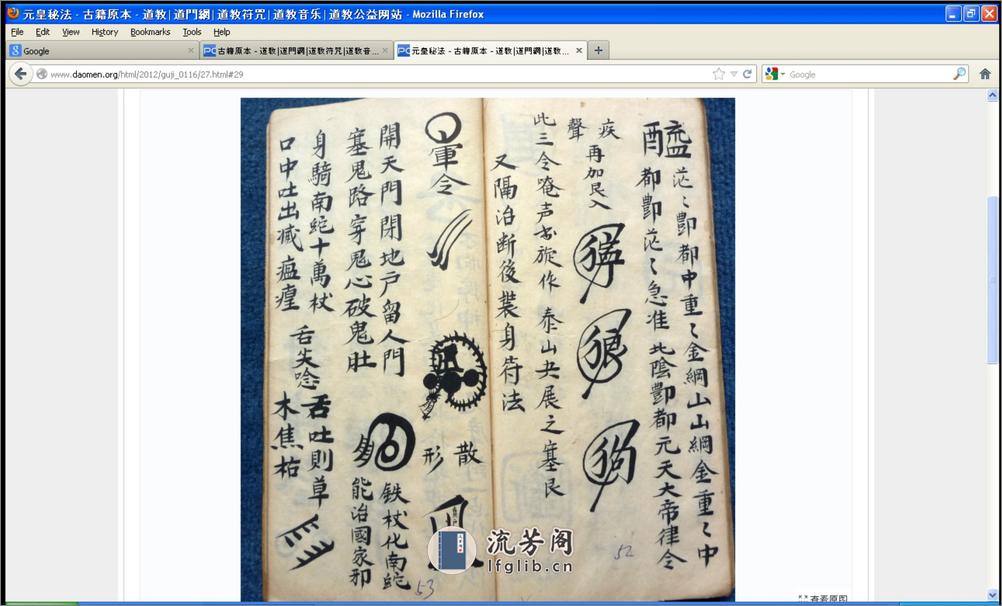 元皇秘法 - 古籍原本 - 道教|道門網|道教符咒|道教音乐|道教公益网站 - Mozilla Firefox
File Edit View History Bookmarks Tools Help
Google
古籍原本 - 道教|道門網|道教符咒|道教音...
元皇秘法 - 古籍原本 - 道教|道門網|道教...
www.daomen.org/html/2012/guji_0116/27.html#29
Google
茫〻酆都中重〻金綱山山綱金重〻中
都酆茫〻急准 北陰酆都元天大帝律令
疾
聲
再加艮入
此三令唵声
旋作 泰山
展之塞艮
又隔治断後裝身符法
軍令
散
形
開天門閉地户留人門
塞鬼路穿鬼心破鬼肚
铁杖化南蛇
能治國家邪
身騎南蛇十萬杖
口中吐出滅瘟瘟
舌尖唸
舌吐則草
木焦枯
52
53
流芳阁
lfglib.cn
查看原图